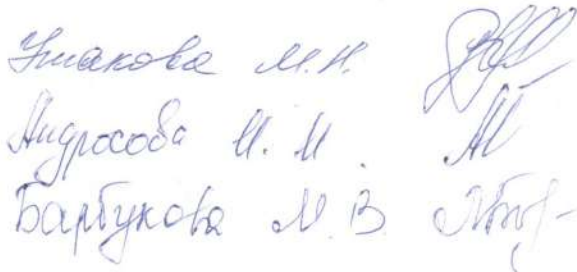 Ушакова М.Н.
Андросова М.М.
Барбукова М.В.